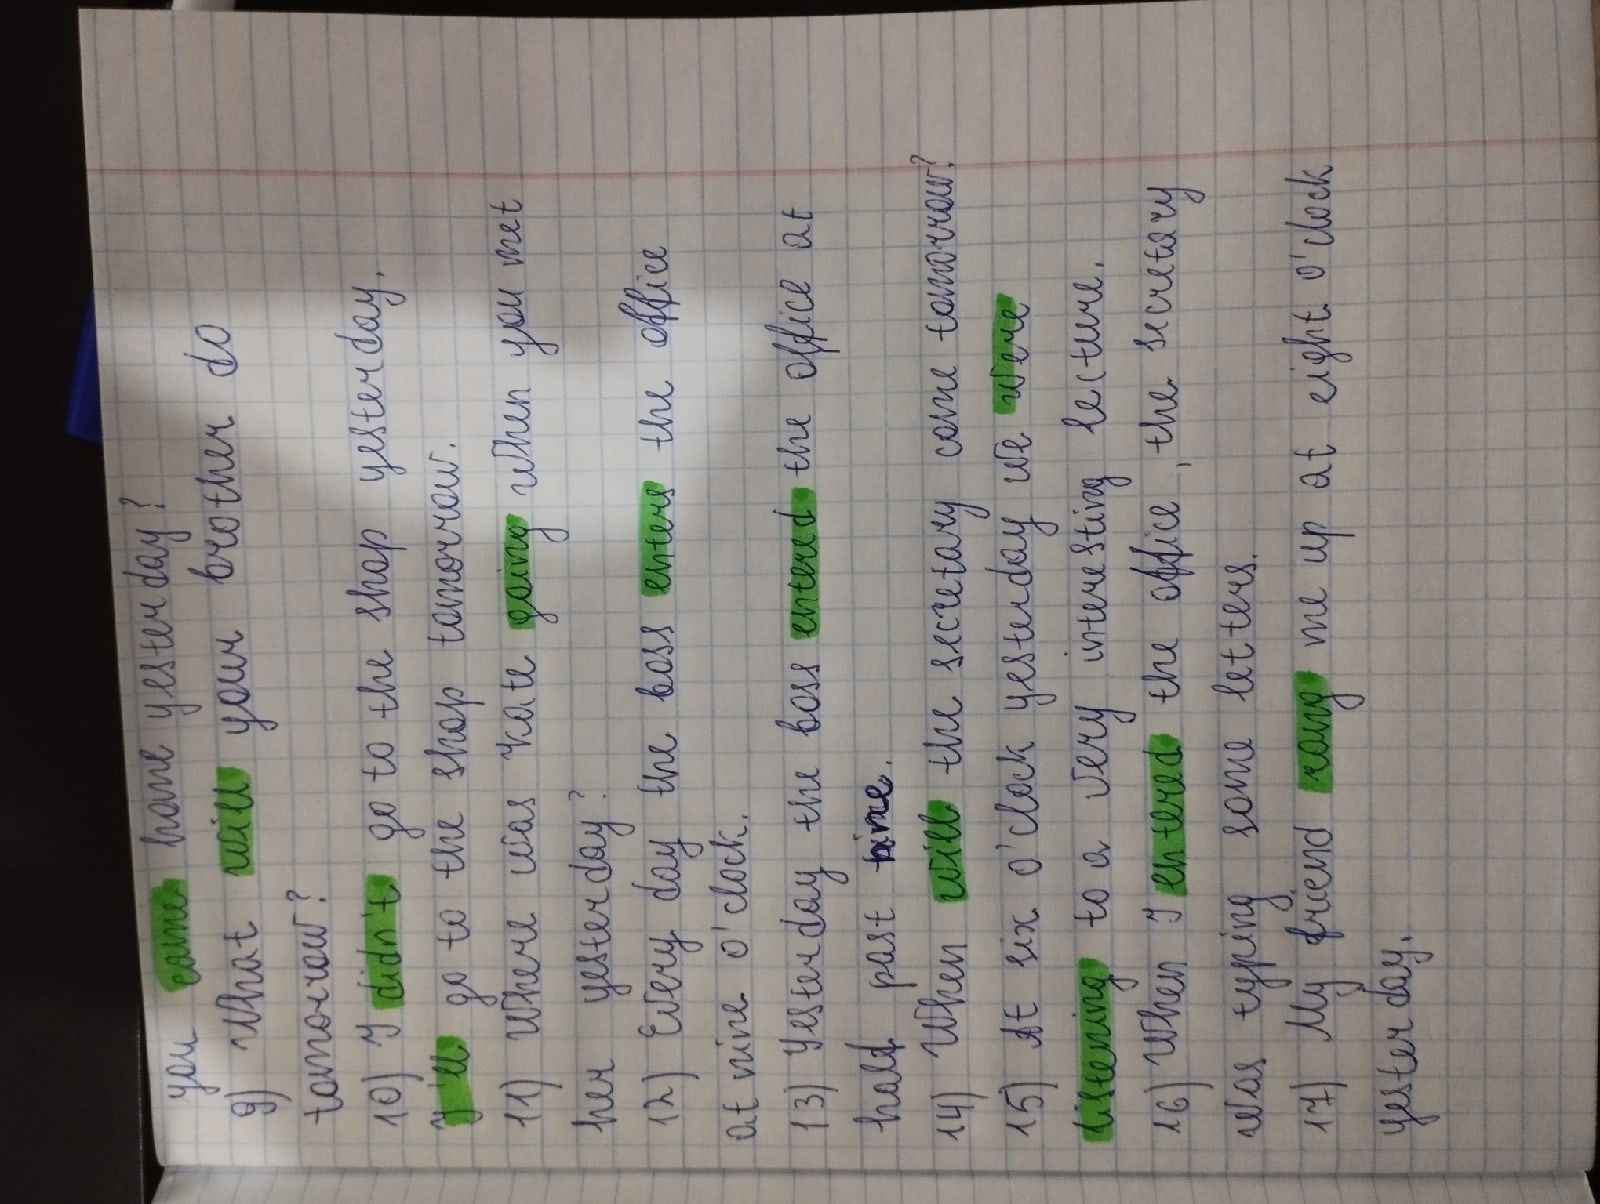 you came home yesterday?
9) What will your brother do
tomorrow?
10) I didn't go to the shop yesterday.
I'll go to the shop tomorrow.
11) Where was Kate going when you met
her yesterday?
12) Every day the boss enters the office
at nine o'clock.
13) Yesterday the boss entered the office at
half past nine.
14) When will the secretary come tomorrow?
15) At six o'clock yesterday we were
listening to a very interesting lecture.
16) When I entered the office, the secretary
was typing some letters.
17) My friend rang me up at eight o'clock
yesterday.